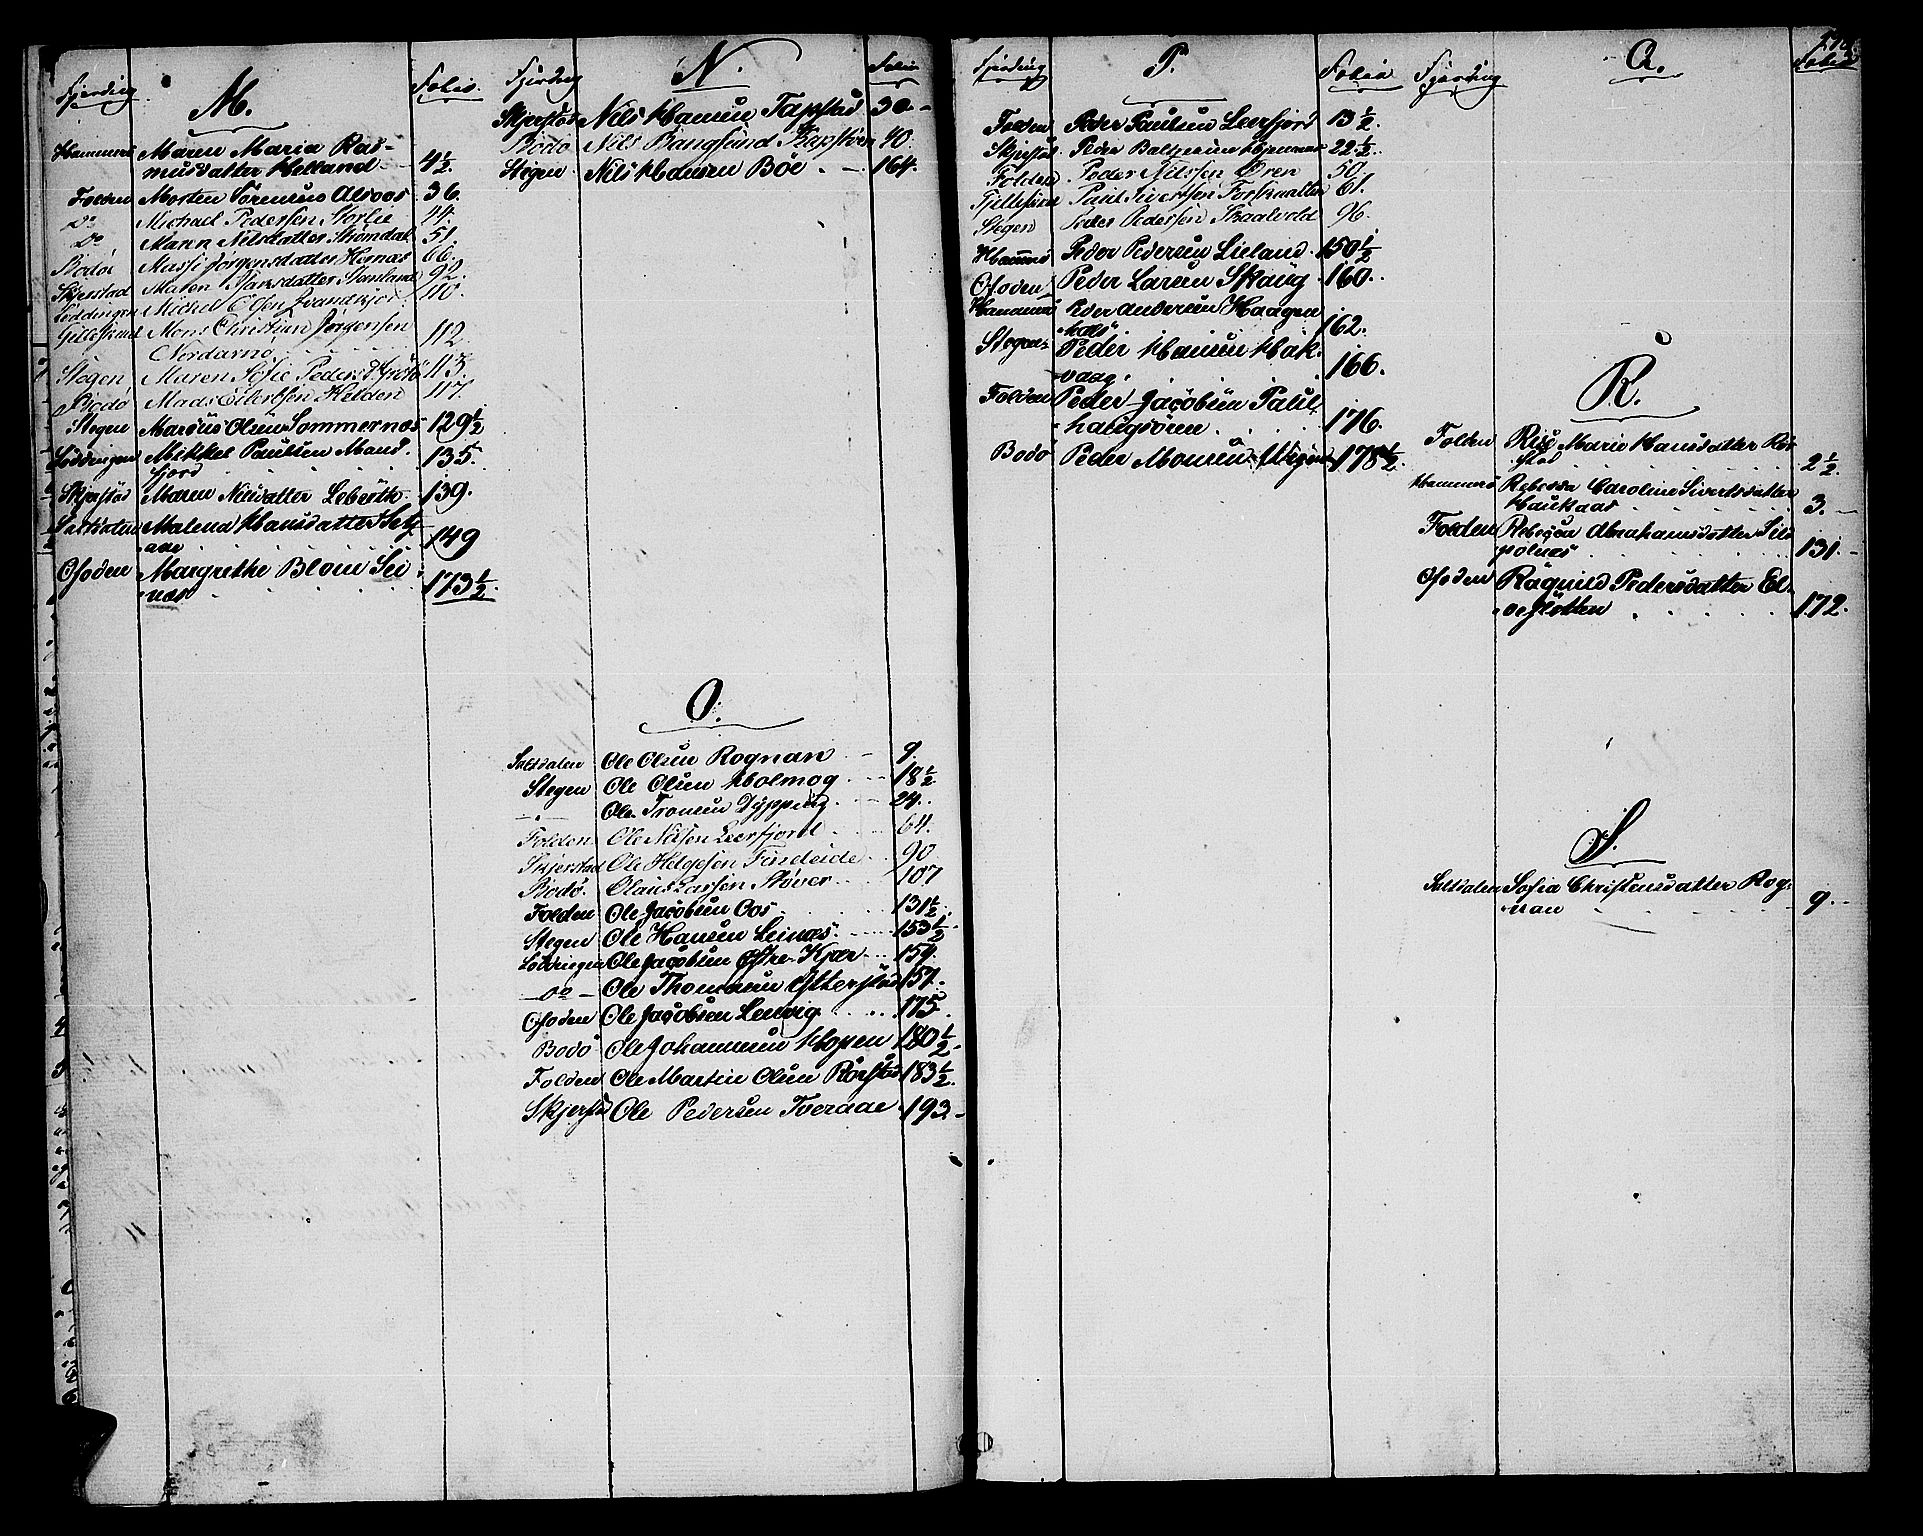 Fjerding M. Folio.
Hammerö Maren Maria Ras-
musdatter Helland 4½.
Folden Morten Sörensen 36.
Do Michael Pedersen Storlie 44.
Do Maren Nilsdatter Strömdal 51
Bodöe Jörgensdatter 66.
Skjerstad Maren Hansdatter 92
Loddingen Michel Olsen 110.
Gilleskaal Mons Christian Jörgensen 112
Nordarnö
Stegen Maren Sofie Peders 113.
Bodö Mads Eilertsen Helden 117.
Stegen Marcus Olsen Sommernæs 129½
Loddingen Mikkel Paulsen Mand-
fjord 135.
Skjerstad Maren Nilsdatter 139.
Saltdalen Malena Hansdatter
149
Ofoden Margrethe Blom Sei
næs 173½
Fjerding N. Folio
Skjerstad Nils Hansen 30.
Bodö Nils Bangsund 40.
Stegen Nils Hansen Böe 164.
O.
Saltdalen Ole Olsen Rognan 9.
Stegen Ole Olsen Holmog 18½
Ole Tronsen 24.
Folden Ole Nilsen Leerfjord 64.
Skjerstad Ole Helgesen Fineide 90
Bodö. Olaus Larsen Støver 107
Folden Ole Jacobsen Oos 131½
Stegen Ole Hansen Leinæs. 153½
Loddingen Ole Jacobsen Østre Kjær 154.
do Ole Thomasen 157.
Ofoden Ole Jacobsen Lenvig 175.
Bodö Ole Johannesen Hopen 180½
Folden Ole Martin Olsen Rörstad 183½
Skjerstad Ole Pedersen Tveraae 193
Fjerding P. Folio
Folden Peder Paulsen Leerfjord 13½
Skjerstad Peder Baltzersen 22½
Folden Peder Nilssen Øren 50.
Paul Sivertsen 61.
Stegen Peder Pedersen Skaalvold 96.
Hammerö Peder Pedersen Lieland 150½
Ofoden Peder Larsen Skaug 160.
Hammerö Peder Andersen Haagen
162.
Stegen Peder Hansen Hak-
vaag 166.
Folden Peder Jacobsen Paul
haugsören 176.
Bodö Peder Monsen 178½
Fjerding Q. Folio
R.
Folden Risæ Marie Hansdatter Rör
stad 2½
Hammerö Rebecca Caroline Sivertsdatter
Haukaas 3.
Folden Rebecca Abrahamsdatter Sild
polnæs 131.
Ofoden Ragnild Pedersdatter El-
veslötten 172.
S.
Saltdalen Sofia Christensdatter Rog-
nan 9.